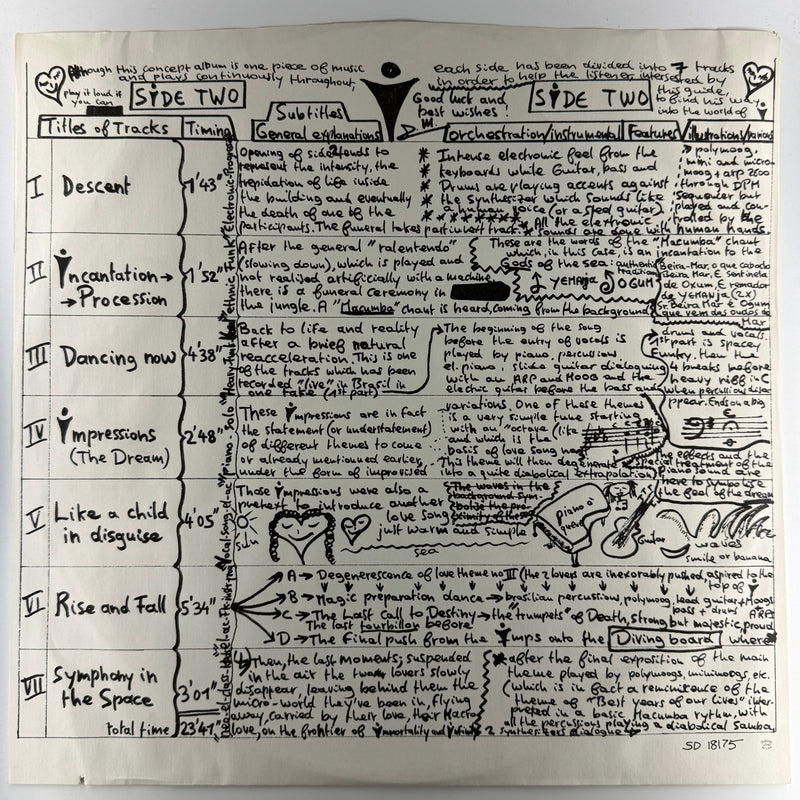 Although this concept album is one piece of music
and plays continuously throughout,
play it loud if
you can
each side has been divided into 7 tracks
in order to help the listener interested by
this guide,
to find his way
into the world of
SIDE TWO
Good luck and
best wishes!
SIDE TWO
Titles of Tracks
Timing
Subtitles
General explanations
orchestration/instrumental
Features
illustrations/various
I
Descent
1'43"
Opening of side 2 tends to
represent the intensity, the
trepidation of life inside
the building and eventually
the death of one of the
participants. The funeral takes part in next track.
* Intense electronic feel from the
* keyboards while Guitar, bass and
* Drums are playing accents against
* the synthesizer which sounds like
* a human voice (or a steel guitar)
* All the electronic
* sounds are done with human hands.
polymoog,
mini and micro-
moog + arp 2600
through DPM
sequencer but
played and con-
trolled by the
II
Incantation →
→ Procession
1'52"
After the general "ralentendo"
(slowing down), which is played and
not realised artificially with a machine,
there is a funeral ceremony in
the jungle. A "Macumba" chant is heard, coming from the background
These are the words of the "Macumba" chant
which, in this case, is an incantation to the
Gods of the sea: authentic
traditional
YEMANJA
OGUM
Beira-Mar, o que cabado
Beira-Mar, E sentinela
de Oxum, E remador
de YEMANJA (2x)
Sr. Beira Mar e Ogum
que vem das ondas do
Mar
III
Dancing now
4'38"
Back to life and reality
after a brief natural
reacceleration. This is one
of the tracks which has been
recorded "live" in Brasil in
one take (1st part)
The beginning of the song
before the entry of vocals is
played by piano, percussion,
el. piano, slide guitar dialoguing
with an ARP and MOOG and the
electric guitar before the bass and
drums and vocals.
1st part is spacey
Funky, then the
4 breaks before
heavy riff in C
when percussion disap-
ppear. Ends on a big
IV
Impressions
(The Dream)
2'48"
piano-Solo
These Impressions are in fact
the statement (or understatement)
of different themes to come
or already mentionned earlier,
under the form of improvised
variations. One of these themes
is a very simple tune starting
with an "octave (like
and which is the
basis of love song now
This theme will then degenerate
into a quite diabolical extrapolation)
The effects and the
special treatment of the
piano sound are
here to symbolise
the feel of the dream
V
Like a child
in disguise
4'05"
Those Impressions were also a
pretext to introduce another
love song
just warm and simple
The waves in the
background sym-
bolize the pro-
ximity of the sea
Sun
sea
piano à
queue
Guitar
waves
smile or banana
VI
Rise and Fall
5'34"
A → Degenerescence of love theme no III (the 2 lovers are inexorably pushed, aspired to the
top of
B → Magic preparation dance → brasilian percussion, polymoog, lead guitar + Moogs
bass + drum ARPs
C → The Last Call to Destiny → the "trumpets" of Death, strong but majestic, proud
The last tourbillon before
D → The Final push from the Imps onto the Diving board where
VII
Symphony in
the Space
3'01"
Then, the last moments; suspended
in the air the two lovers slowly
disappear, leaving behind them the
micro-world they've been in, flying
away, carried by their love, their Macro
love, on the frontier of Immortality and Infinity
* after the final exposition of the main
theme played by polymoogs, minimoogs, etc.
(which is in fact a reminiscence of the
theme of "Best years of our lives" inter-
preted in a basic Macumba rythm, with
all the percussions playing a diabolical samba,
2 synthesizers dialogue
total time
23'41"
SD 18175